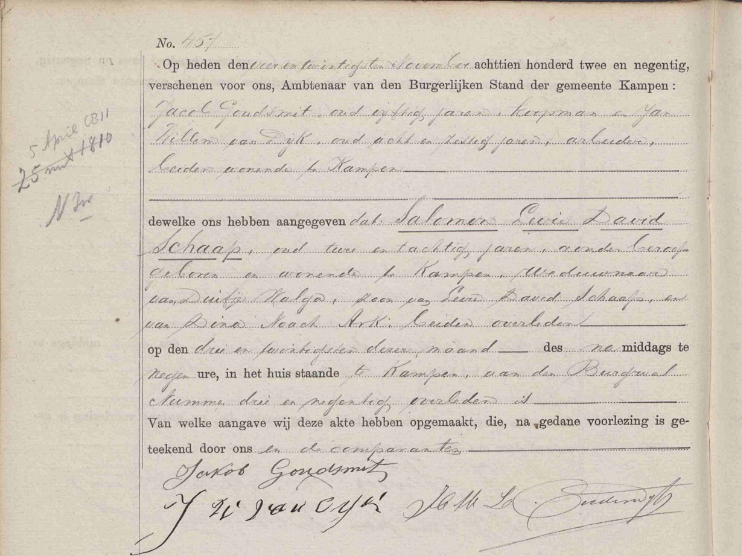 No. 457
Op heden den vier en twintigsten November achttien honderd twee en negentig,
verschenen voor ons, Ambtenaar van den Burgerlijken Stand der gemeente Kampen:
Jacob Goudsmit, oud vijftig jaren, koopman en Jan
Willem van Dijk, oud acht en zestig jaren, arbeider,
beiden wonende te Kampen
5 April 1811
25 1810
dewelke ons hebben aangegeven dat Salomon Levie David
Schaap, oud twee en tachtig jaren, zonder beroep
geboren en wonende te Kampen, Weduwnaar
van Duifje Halga, zoon van Levie David Schaap, en
van Dina Noach Ark. beiden overleden
op den drie en twintigsten dezer maand des na middags te
negen ure, in het huis staande te Kampen, aan den Burgwal
Nummer drie en negentig overleden is
Van welke aangave wij deze akte hebben opgemaakt, die, na gedane voorlezing is ge-
teekend door ons en de comparanten
Jakob Goudsmit
J W van Dijk